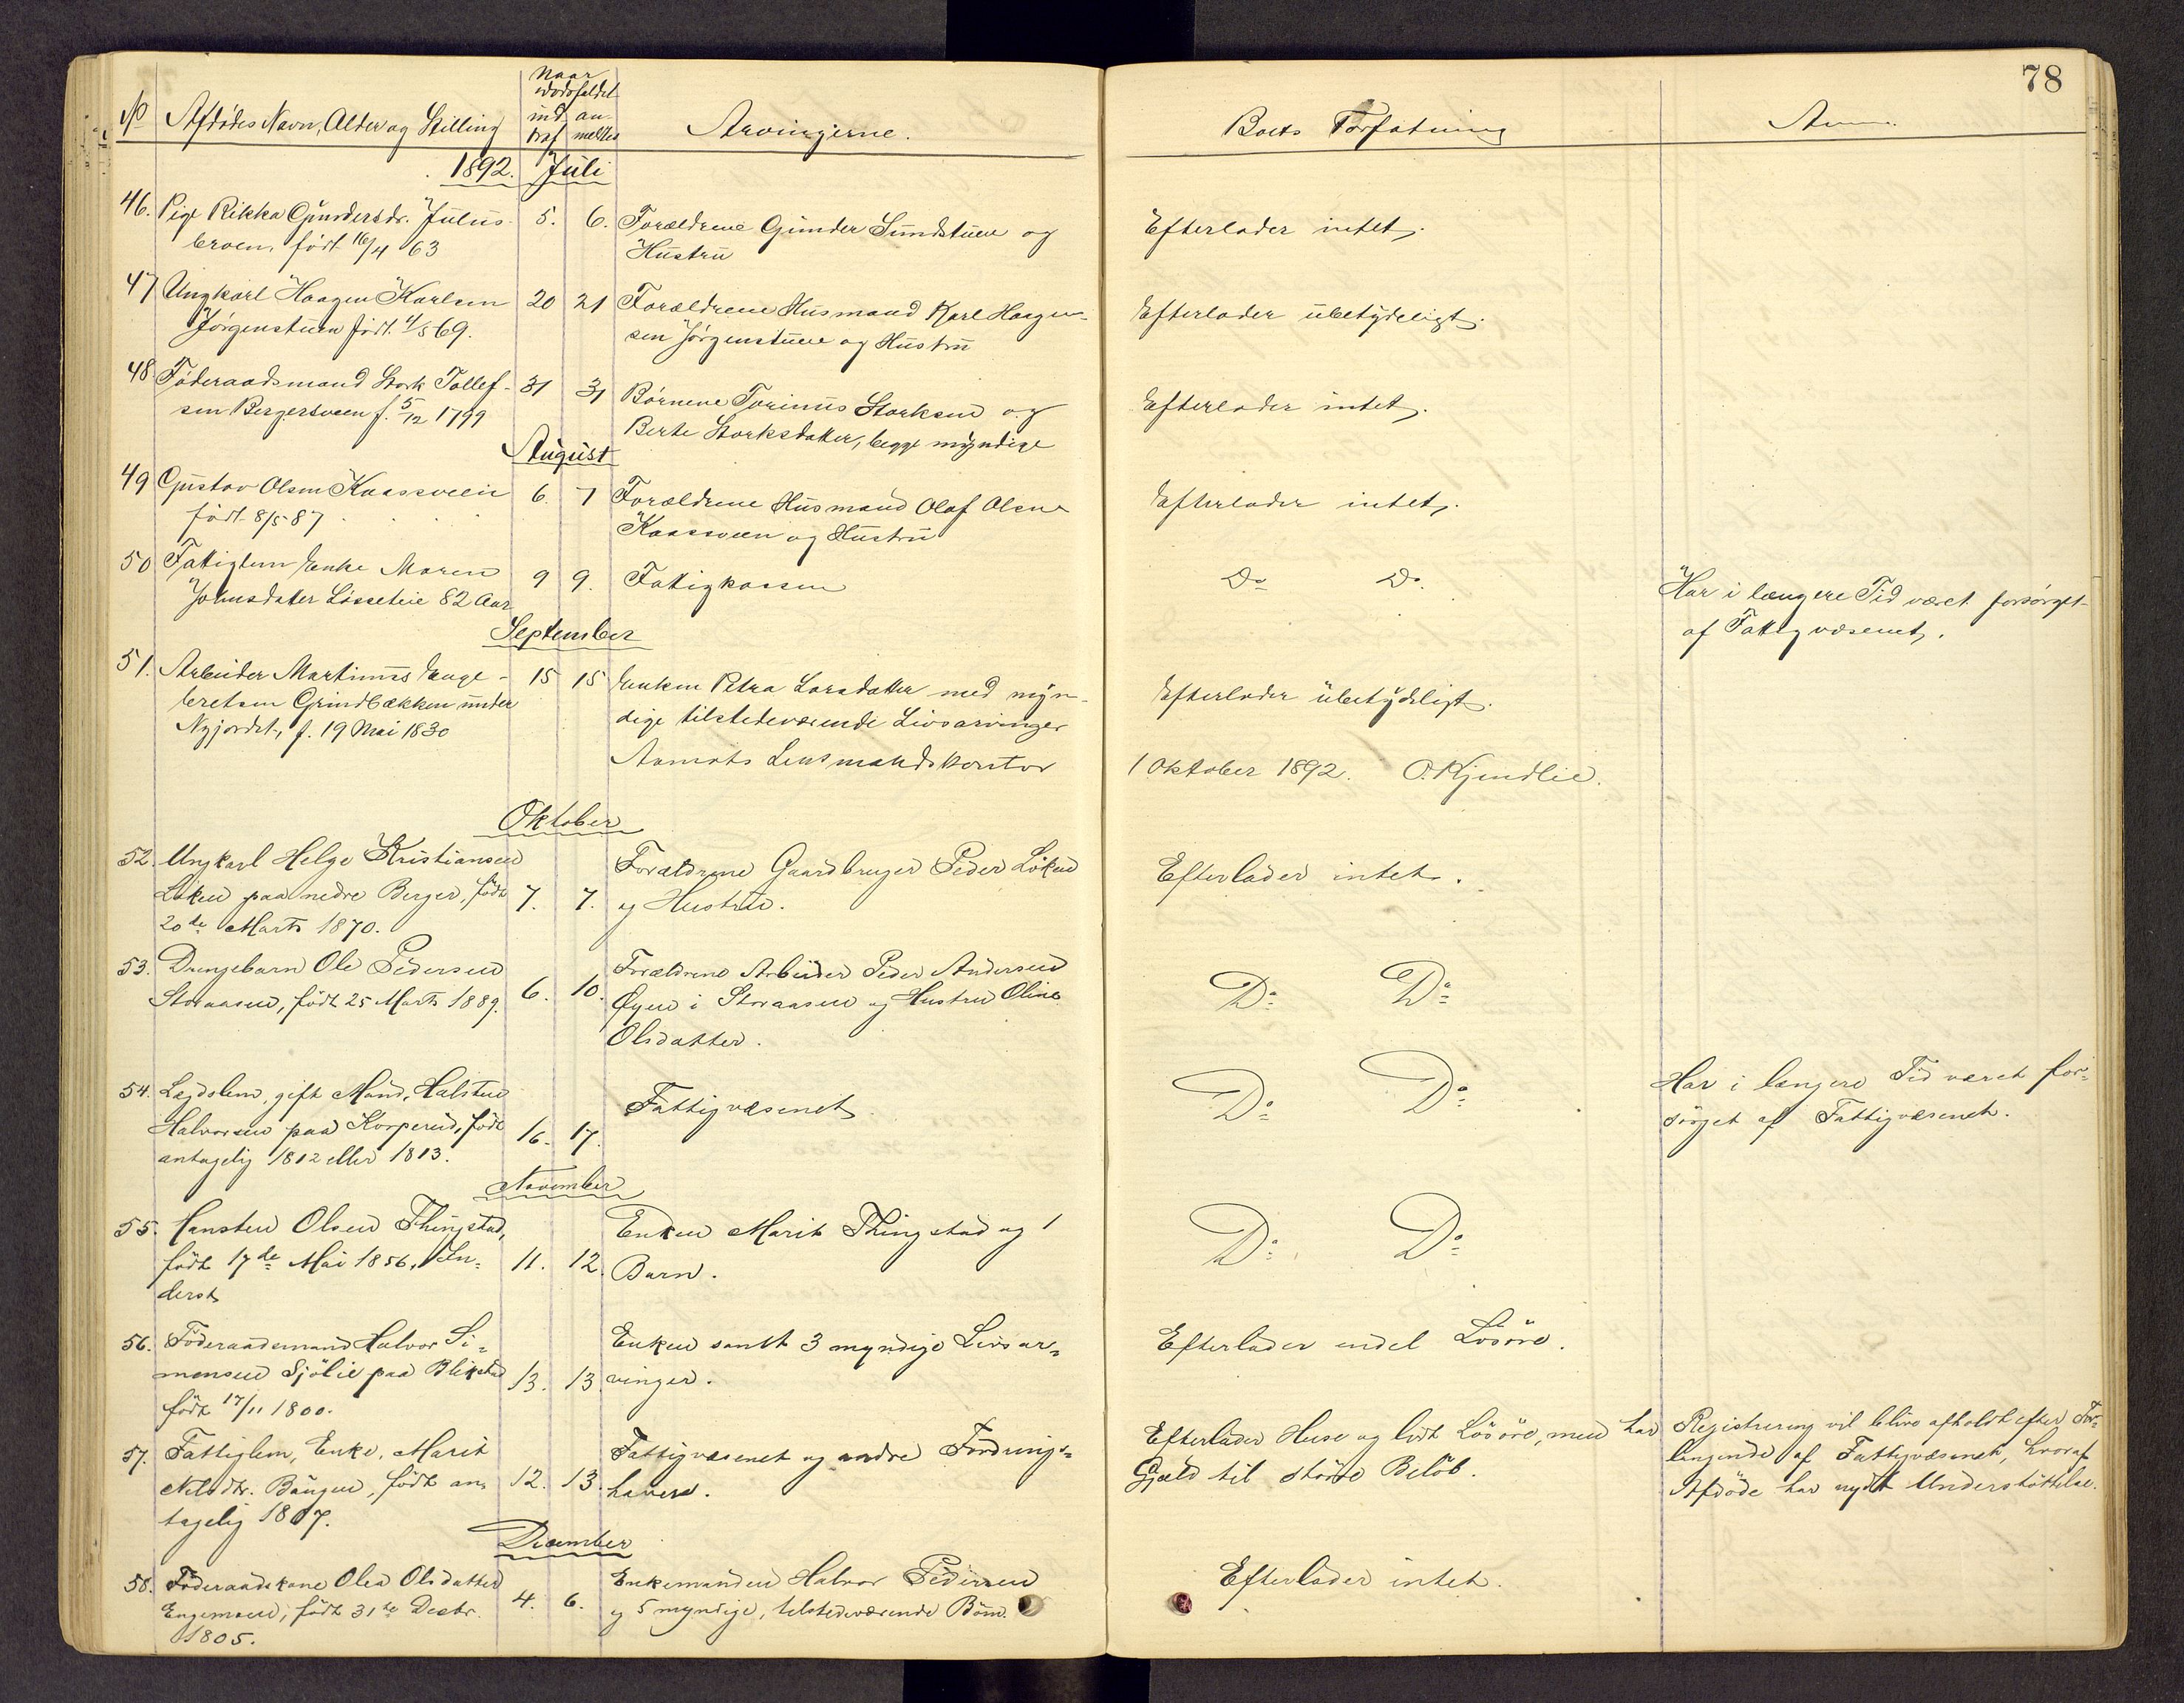 78
No Afdødes Navn, Alder og Stilling
Naar
Dødsfaldet
ind- an-
traf meldtes
Arvingerne.
Boets Forfatning
Anm.
1892. Juli
46. Pige Rikka Gundersdr. Julus-
broen, født 16/4 63
5. 6.
Forældrene Gunder Sundstuen og
Hustru
Efterlader intet.
47 Ungkarl Haagen Karlsen
Jørgenstuen født 4/5 69.
20 21
Forældrene Husmand Karl Haagen-
sen Jørgenstuen og Hustru
Efterlader ubetydeligt.
48 Føderaadsmand Stork Tollef-
sen Bergersveen f. 5/12 1799
31 31
Børnene Torinus Storksen og
Berte Storksdatter, begge myndige
Efterlader intet.
August
49 Gustav Olsen Kaassveen
født 8/5 87
6. 7
Forældrene Husmand Olaf Olsen
Kaassveen og Hustru
Efterlader intet.
50 Fattiglem Enke Maren
Johnsdatter Løsseteie 82 Aar
9 9.
Fattigkassen
Do Do.
Har i længere Tid været forsørget
af Fattigvæsenet.
September
51. Arbeider Martinus Enge-
bretsen Grindbækken under
Nyjordet, f. 19 Mai 1830
15 15
Enken Petra Larsdatter med myn-
dige tilstedeværende Livsarvinger
Efterlader ubetydeligt.
Aamots Lensmandskontor
1 Oktober 1892. O. Kjendlie.
Oktober
52. Ungkarl Helge Kristiansen
Løken paa nedre Berger, født
20de Marts 1870.
7. 7.
Forældrene Gaardbruger Peder Løken
og Hustru.
Efterlader intet.
53. Drengebarn Ole Pedersen
Storaasen, født 25 Marts 1889.
6. 10.
Forældrene Arbeider Peder Andersen
Øyen i Storaasen og Hustru Oline
Olsdatter.
Do Do
54. Lægdslem, gift Mand, Halsten
Halvorsen paa Korperud, født
antagelig 1812 eller 1813.
16. 17.
Fattigvæsenet
Do Do
Har i længere Tid været for-
sørget af Fattigvæsenet.
November
55. Hansten Olsen Thingstad,
født 17de Mai 1856, In-
derst
11. 12.
Enken Marit Thingstad og 1
Barn.
Do Do
56. Föderaadsmand Halvor Si-
monsen Sjølie paa Blikstad
født 17/11 1800.
13. 13.
Enken samt 3 myndige Livsar-
vinger.
Efterlader endel Lösöre.
57. Fattiglem, Enke, Marit
Nilsdtr. Bangen, født an-
tagelig 1807.
12. 13.
Fattigvæsenet og andre Fordrings-
havere.
Efterlader Huse og lidt Lösöre, men har
Gjæld til større Beløb.
Registrering vil blive afholdt efter For-
langende af Fattigvæsenet, hvoraf
Afdøde har nydt Understøttelse.
December
58. Föderaadskone Olea Olsdatter
Engemoen, født 31te Decbr.
1805.
4. 6.
Enkemanden Halvor Pedersen
og 5 myndige, tilstedeværende Børn.
Efterlader intet.